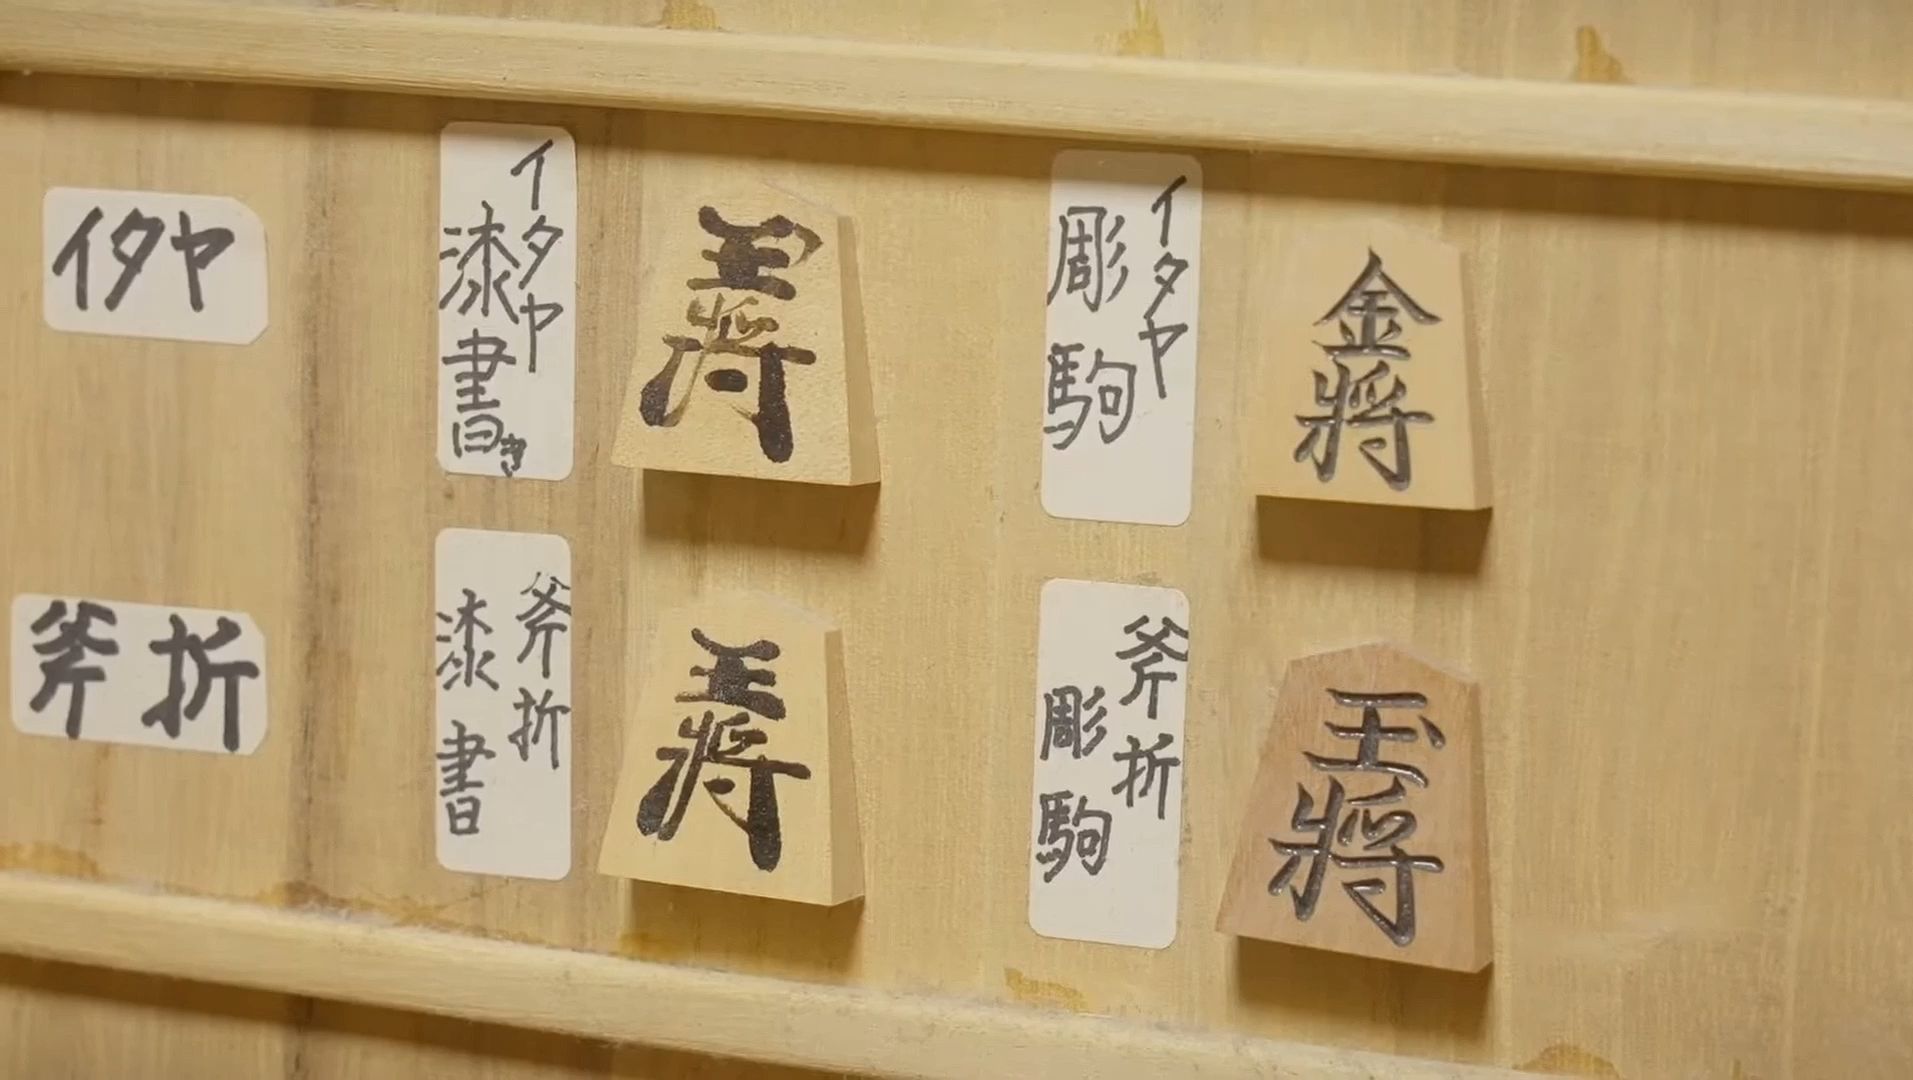 イタヤ
イタヤ
漆書き
王将
イタヤ
彫駒
金将
斧折
斧折
漆書
王将
斧折
彫駒
玉将